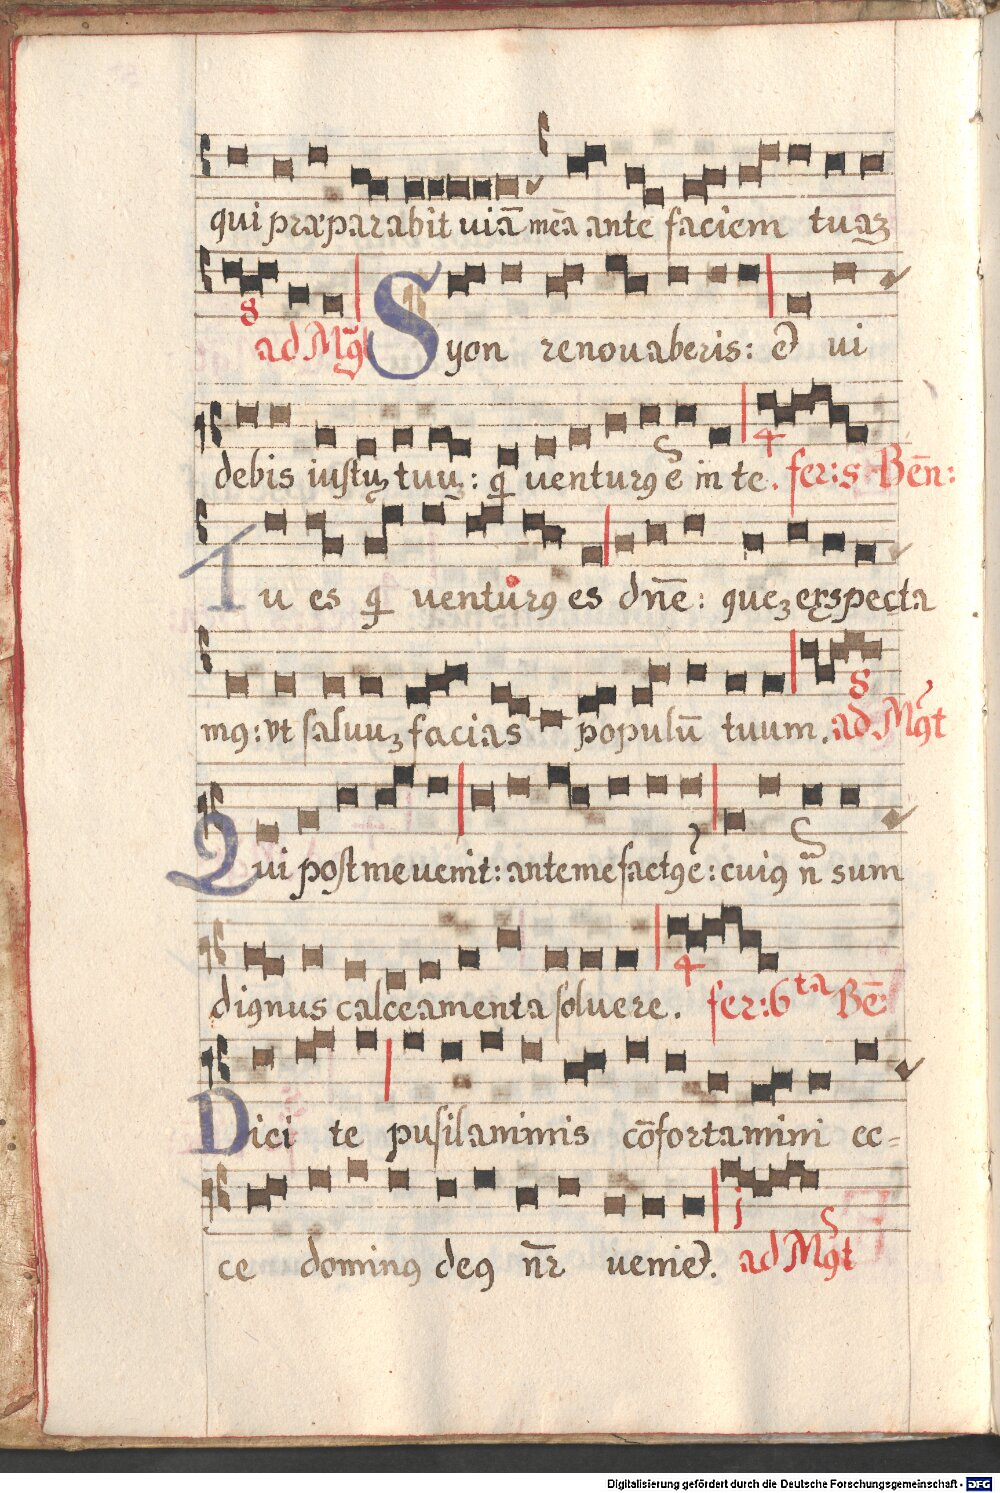 qui præparabit uiā meā ante faciem tuaʒ
8 ad Mḡt Syon renouaberis: et ui
debis iustuʒ tuuʒ: qi uenturꝰ ē in te. 4 fer: 5 Bēn:
Tu es qi uenturꝰ es dn̄e: queʒ exspecta
mꝰ: vt saluuʒ facias populū tuum. 8 ad Mgt
Qui post me uenit: ante me factꝰ ē: cuiꝰ n̄ sum
dignus calceamenta soluere. 4 fer: 6ta Bē:
Dicite pusilanimis cōfortamini ec=
ce dominꝰ deꝰ nr̄ ueniet. j ad Mgt
Digitalisierung gefördert durch die Deutsche Forschungsgemeinschaft - DFG